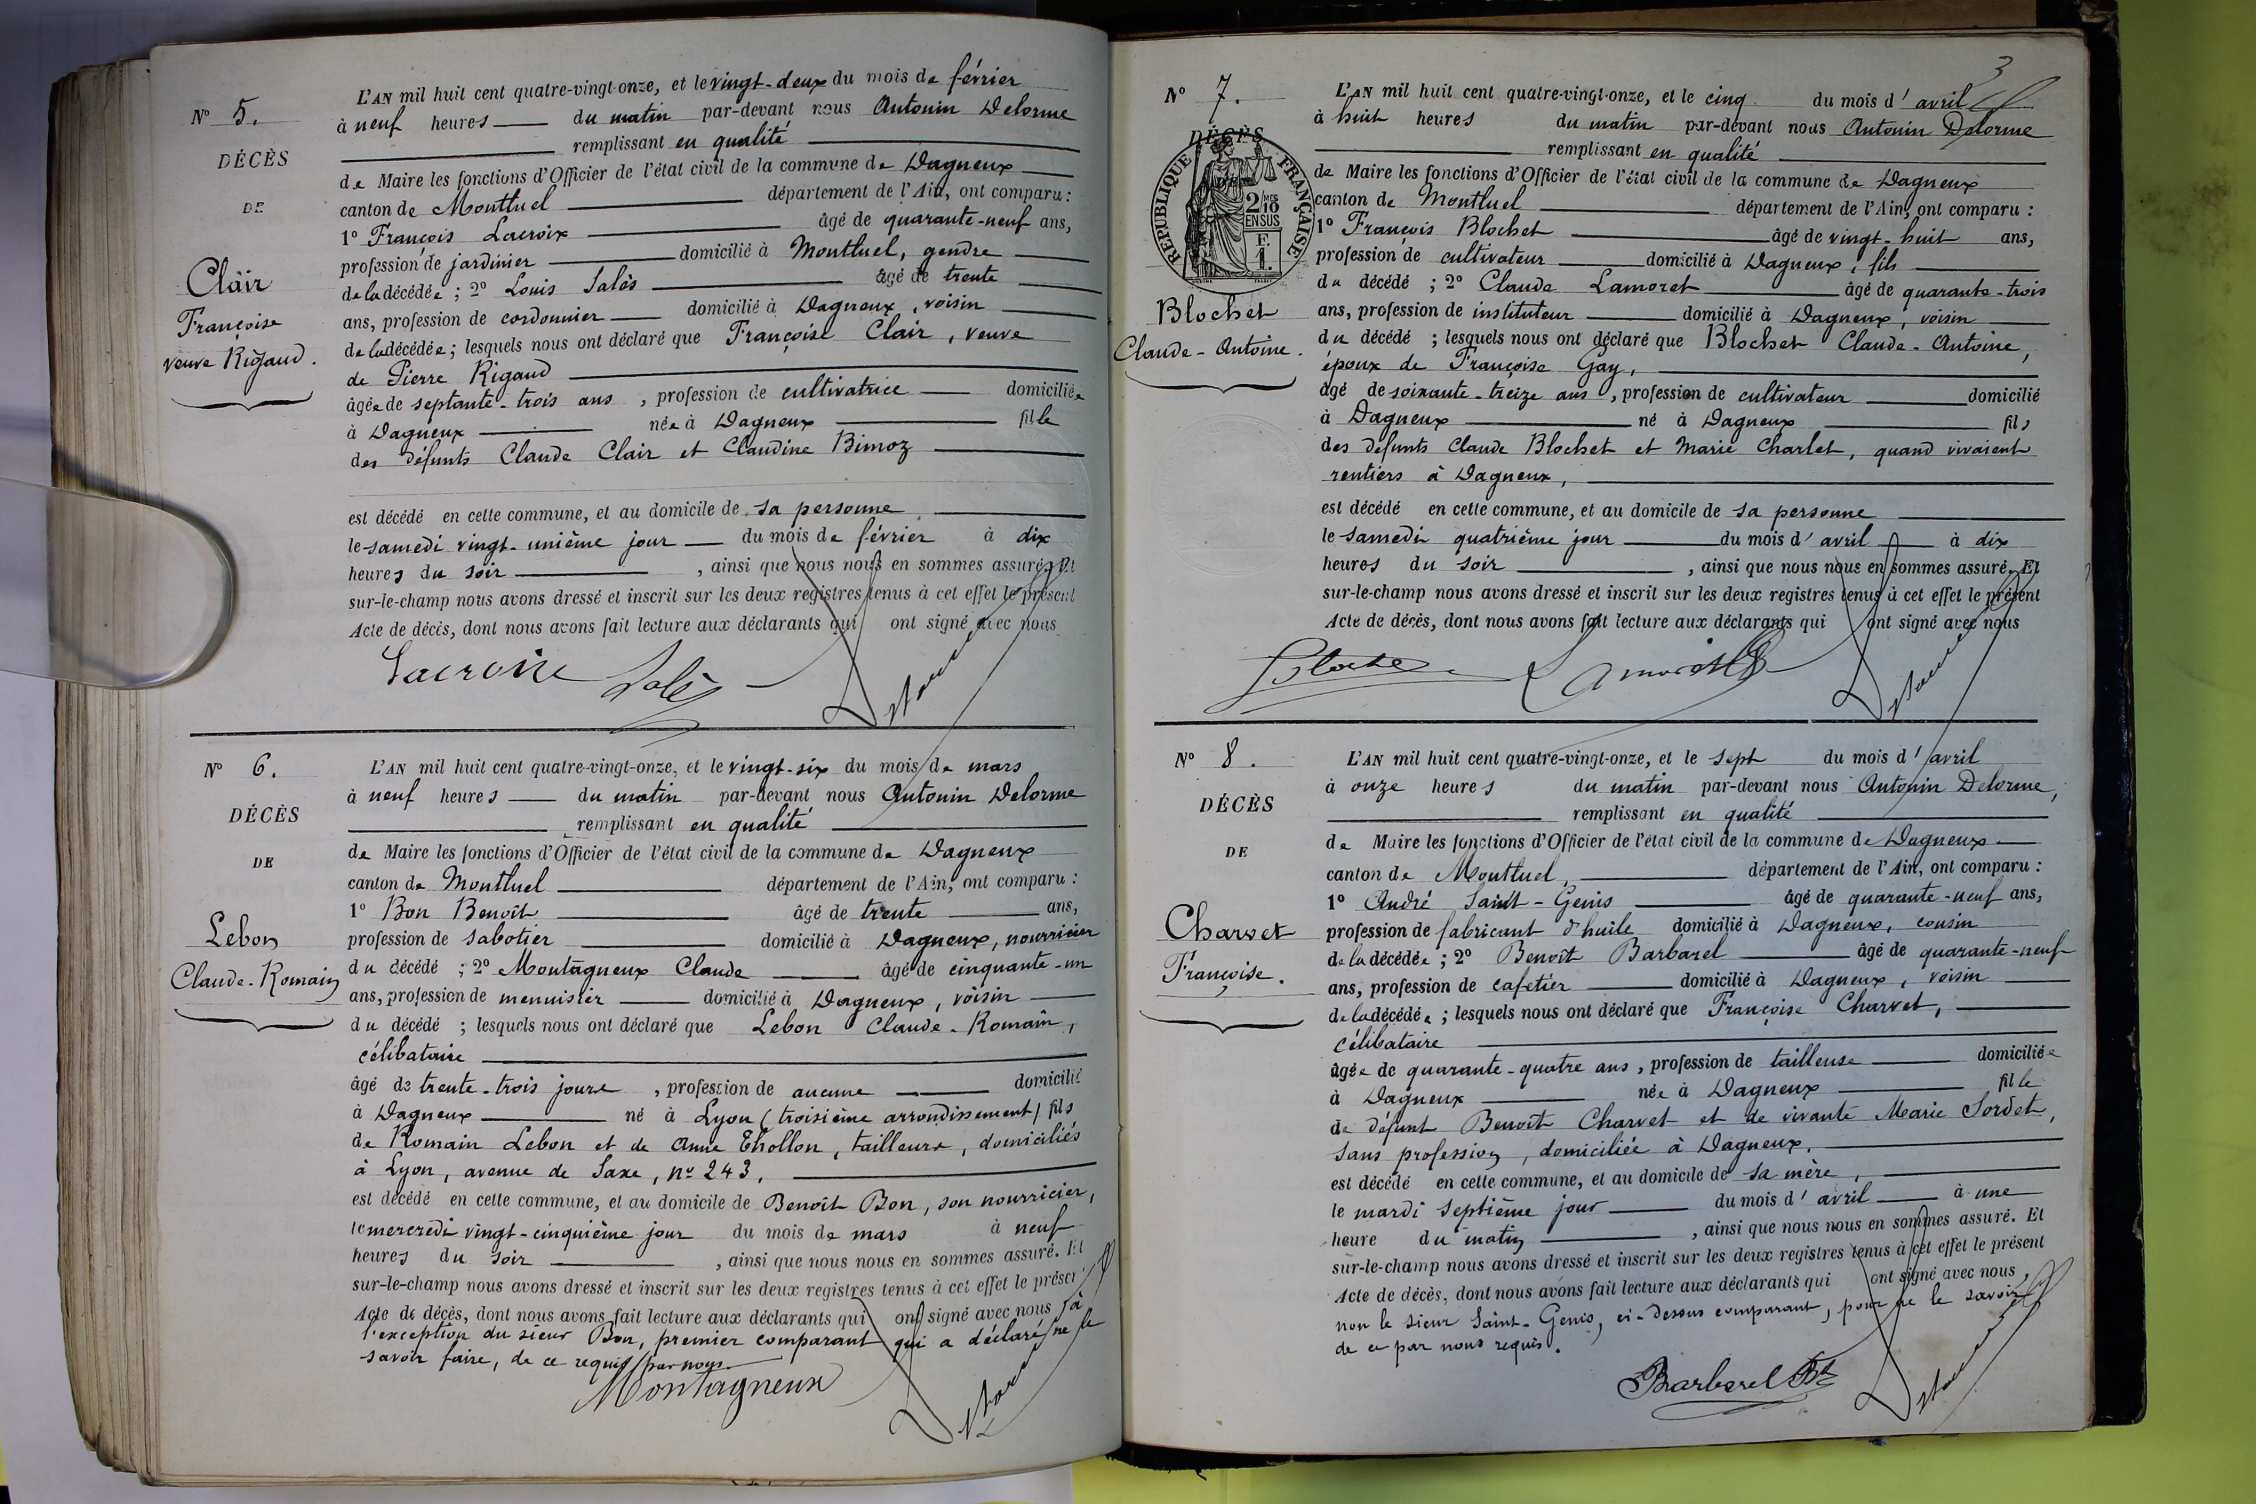 N° 5.
DÉCÈS
DE
Clair
Françoise
veuve Rigaud.
L'AN mil huit cent quatre-vingt-onze, et le vingt-deux du mois de février
à neuf heures du matin par-devant nous Antonin Delorme
remplissant en qualité
de Maire les fonctions d'Officier de l'état civil de la commune de Dagneux
canton de Montluel département de l'Ain, ont comparu :
1° François Lacroix âgé de quarante-neuf ans,
profession de jardinier domicilié à Montluel, gendre
de la décédée ; 2° Louis Salès âgé de trente
ans, profession de cordonnier domicilié à Dagneux, voisin
de la décédée ; lesquels nous ont déclaré que Françoise Clair, veuve
de Pierre Rigaud
âgée de septante-trois ans, profession de cultivatrice domiciliée
à Dagneux née à Dagneux fille
des défunts Claude Clair et Claudine Bimoz
est décédé en cette commune, et au domicile de sa personne
le samedi vingt-unième jour du mois de février à dix
heures du soir, ainsi que nous nous en sommes assuré. Et
sur-le-champ nous avons dressé et inscrit sur les deux registres tenus à cet effet le présent
Acte de décès, dont nous avons fait lecture aux déclarants qui ont signé avec nous
Lacroix Salès Delorme
N° 6.
DÉCÈS
DE
Lebon
Claude-Romain
L'AN mil huit cent quatre-vingt-onze, et le vingt-six du mois de mars
à neuf heures du matin par-devant nous Antonin Delorme
remplissant en qualité
de Maire les fonctions d'Officier de l'état civil de la commune de Dagneux
canton de Montluel département de l'Ain, ont comparu :
1° Bon Benoît âgé de trente ans,
profession de sabotier domicilié à Dagneux, nourricier
du décédé ; 2° Montagneux Claude âgé de cinquante-un
ans, profession de menuisier domicilié à Dagneux, voisin
du décédé ; lesquels nous ont déclaré que Lebon Claude-Romain,
célibataire
âgé de trente-trois jours, profession de aucune domicilié
à Dagneux né à Lyon (troisième arrondissement) fils
de Romain Lebon et de Anne Thollon, tailleurs, domiciliés
à Lyon, avenue de Saxe, n° 243,
est décédé en cette commune, et au domicile de Benoît Bon, son nourricier,
le mercredi vingt-cinquième jour du mois de mars à neuf
heures du soir, ainsi que nous nous en sommes assuré. Et
sur-le-champ nous avons dressé et inscrit sur les deux registres tenus à cet effet le présent
Acte de décès, dont nous avons fait lecture aux déclarants qui ont signé avec nous, à
l'exception du sieur Bon, premier comparant qui a déclaré ne le
savoir faire, de ce requis par nous.
Montagneux Delorme
3
N° 7.
DÉCÈS
RÉPUBLIQUE FRANÇAISE
2/10MES
EN SUS
F.
1.
Blochet
Claude-Antoine.
L'AN mil huit cent quatre-vingt-onze, et le cinq du mois d'avril
à huit heures du matin par-devant nous Antonin Delorme
remplissant en qualité
de Maire les fonctions d'Officier de l'état civil de la commune de Dagneux
canton de Montluel département de l'Ain, ont comparu :
1° François Blochet âgé de vingt-huit ans,
profession de cultivateur domicilié à Dagneux, fils
du décédé ; 2° Claude Lamoret âgé de quarante-trois
ans, profession de instituteur domicilié à Dagneux, voisin
du décédé ; lesquels nous ont déclaré que Blochet Claude-Antoine,
époux de Françoise Gay,
âgé de soixante-treize ans, profession de cultivateur domicilié
à Dagneux né à Dagneux fils
des défunts Claude Blochet et Marie Charlet, quand vivaient
rentiers à Dagneux,
est décédé en cette commune, et au domicile de sa personne
le samedi quatrième jour du mois d'avril à dix
heures du soir, ainsi que nous nous en sommes assuré. Et
sur-le-champ nous avons dressé et inscrit sur les deux registres tenus à cet effet le présent
Acte de décès, dont nous avons fait lecture aux déclarants qui ont signé avec nous
Blochet Lamoret Delorme
N° 8.
DÉCÈS
DE
Charvet
Françoise.
L'AN mil huit cent quatre-vingt-onze, et le sept du mois d'avril
à onze heures du matin par-devant nous Antonin Delorme,
remplissant en qualité
de Maire les fonctions d'Officier de l'état civil de la commune de Dagneux
canton de Montluel, département de l'Ain, ont comparu :
1° André Saint-Genis âgé de quarante-neuf ans,
profession de fabricant d'huile domicilié à Dagneux, cousin
de la décédée ; 2° Benoît Barbarel âgé de quarante-neuf
ans, profession de cafetier domicilié à Dagneux, voisin
de la décédée ; lesquels nous ont déclaré que Françoise Charvet,
célibataire
âgée de quarante-quatre ans, profession de tailleuse domiciliée
à Dagneux née à Dagneux fille
de défunt Benoît Charvet et de vivante Marie Sordet,
sans profession, domiciliée à Dagneux.
est décédé en cette commune, et au domicile de sa mère,
le mardi septième jour du mois d'avril à une
heure du matin, ainsi que nous nous en sommes assuré. Et
sur-le-champ nous avons dressé et inscrit sur les deux registres tenus à cet effet le présent
Acte de décès, dont nous avons fait lecture aux déclarants qui ont signé avec nous,
non le sieur Saint-Genis, ci-dessus comparant, pour ne le savoir
de ce par nous requis.
Barbarel Bt Delorme